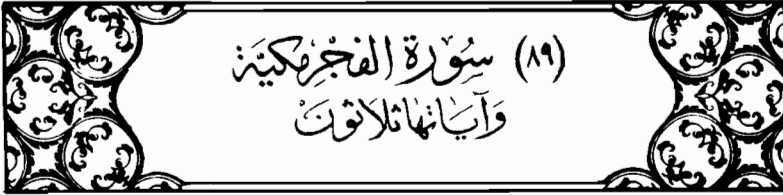 (٨٩) سُورَة الفَجْرِ مَكِيَّة
وَآيَاتهَا ثلاثُونَ